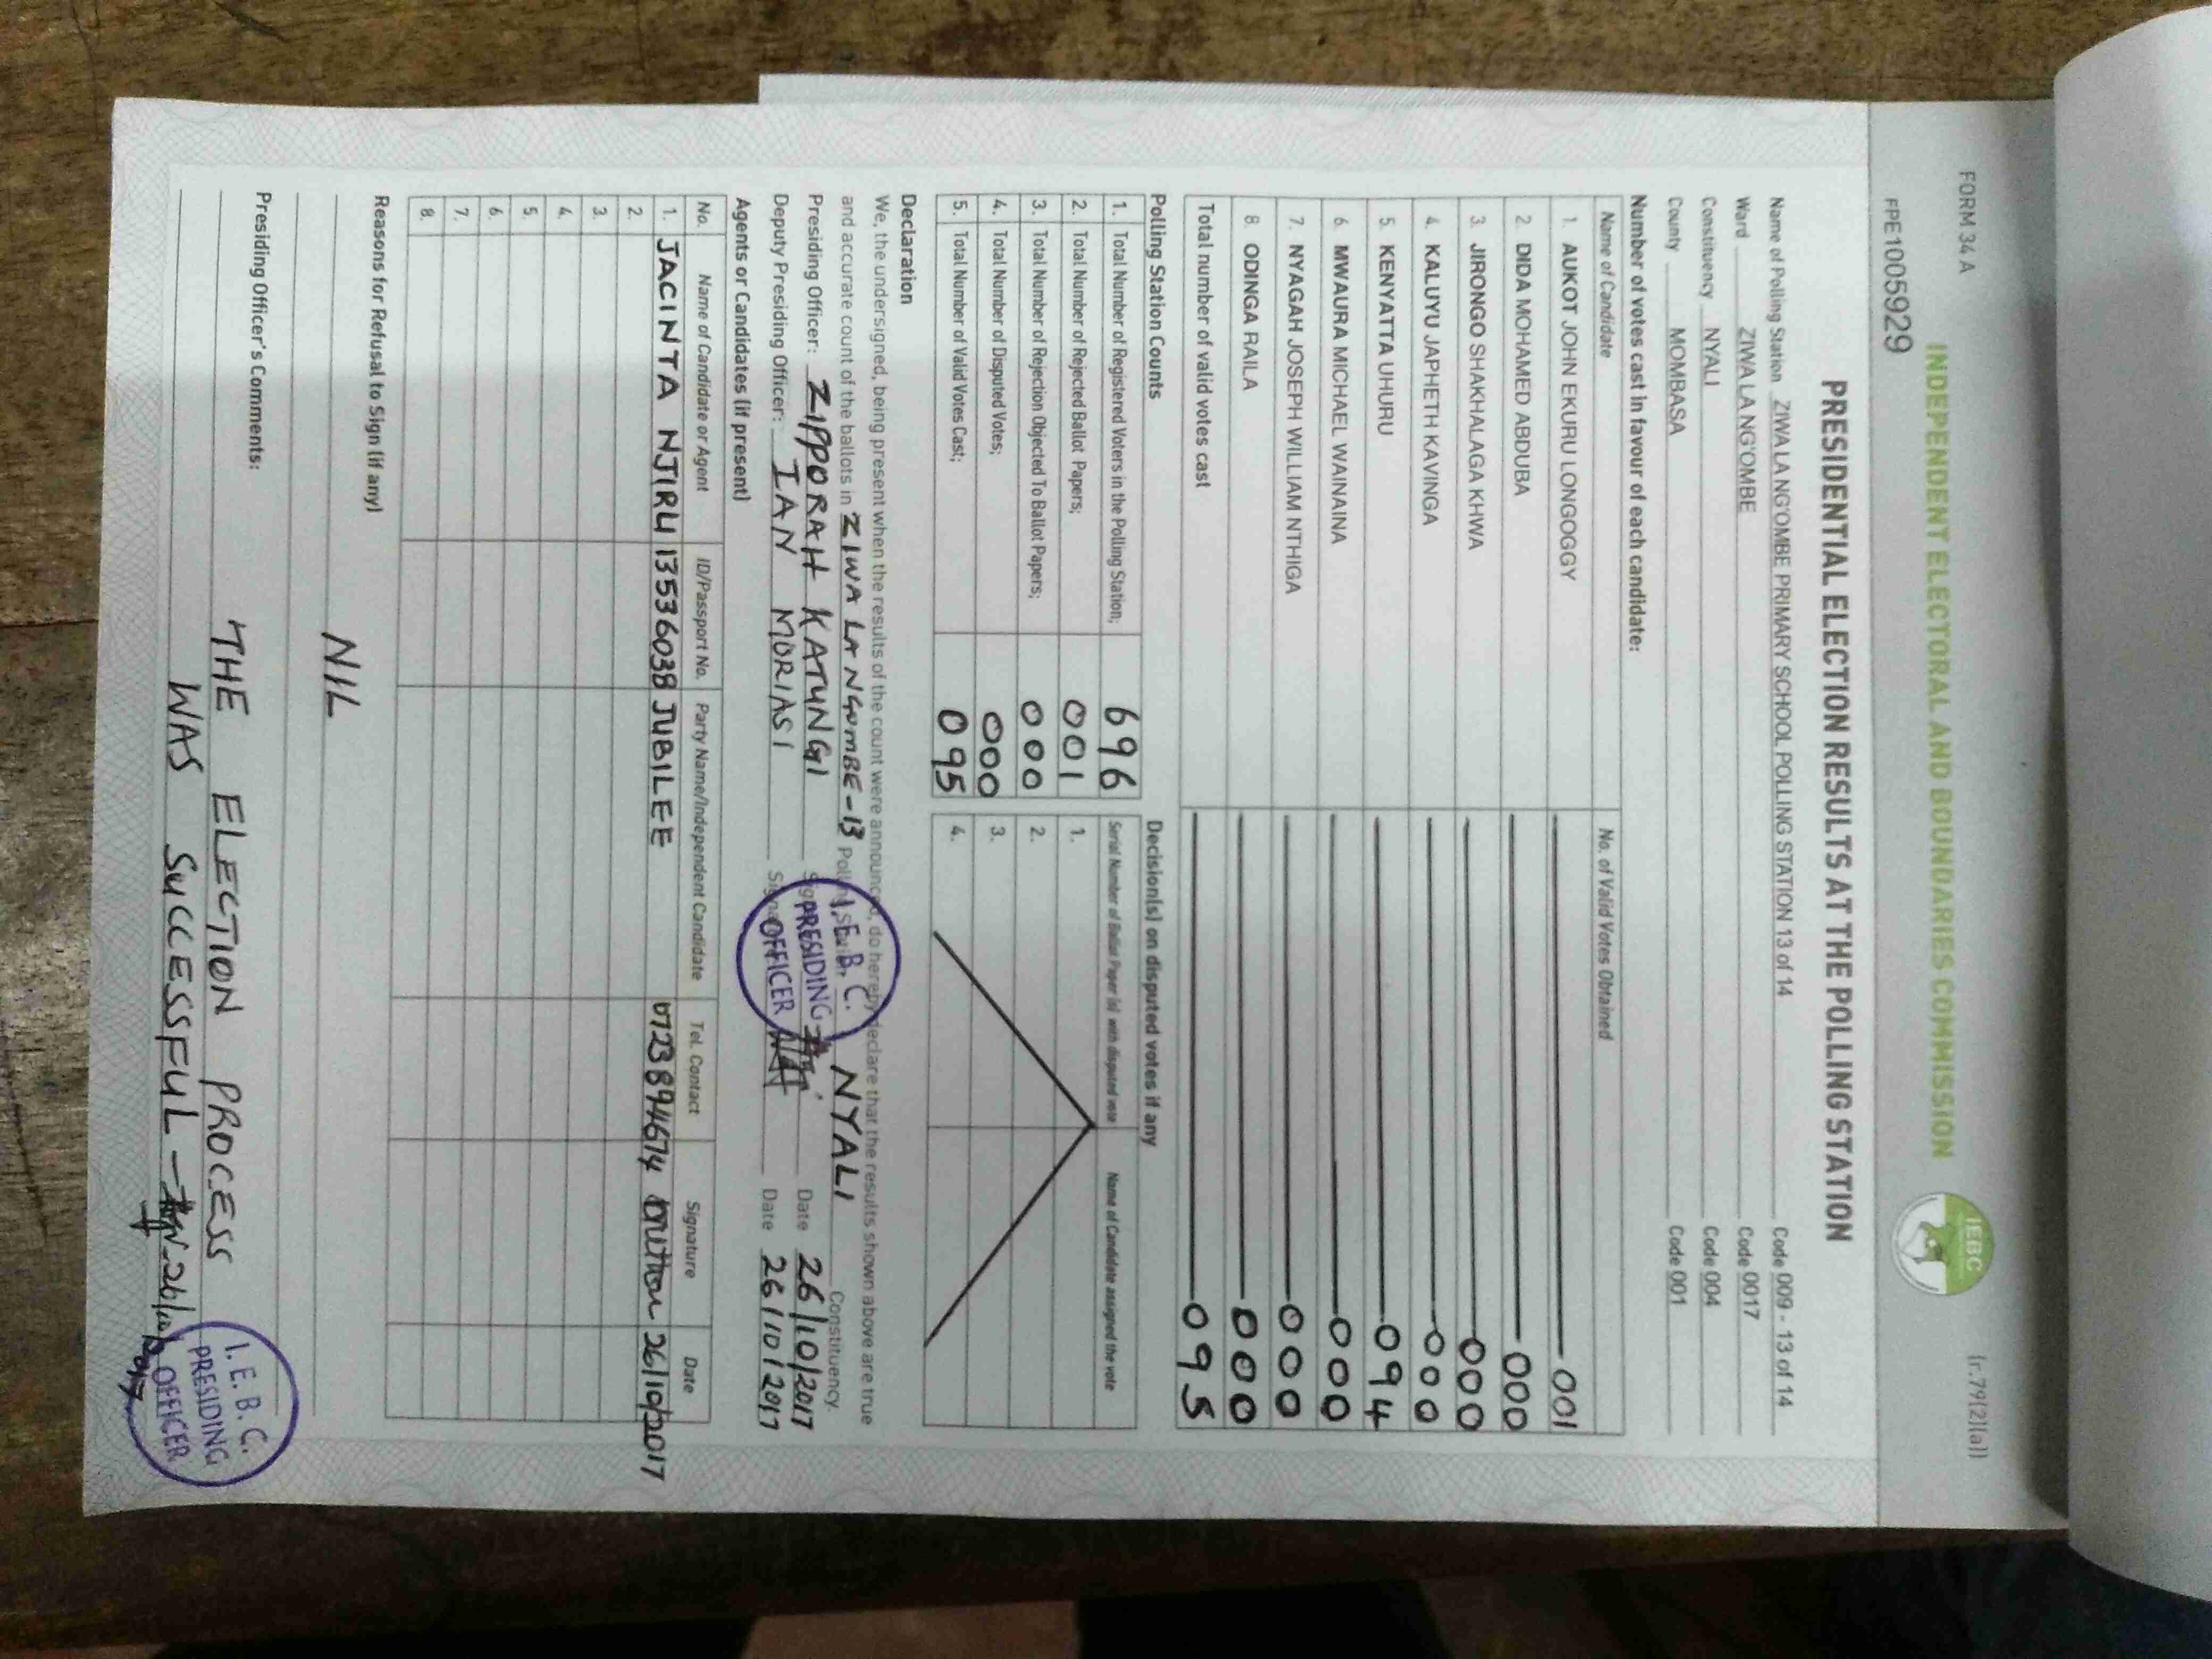 FORM 34 A
(r.79(2)(a))
INDEPENDENT ELECTORAL AND BOUNDARIES COMMISSION
IEBC
FPE1005929
PRESIDENTIAL ELECTION RESULTS AT THE POLLING STATION
Name of Polling Station ZIWA LA NG'OMBE PRIMARY SCHOOL POLLING STATION 13 of 14 Code 009 - 13 of 14
Ward ZIWA LA NG'OMBE Code 0017
Constituency NYALI Code 004
County MOMBASA Code 001
Number of votes cast in favour of each candidate:
Name of Candidate No. of Valid Votes Obtained
1. AUKOT JOHN EKURU LONGOGGY 001
2. DIDA MOHAMED ABDUBA 000
3. JIRONGO SHAKHALAGA KHWA 000
4. KALUYU JAPHETH KAVINGA 000
5. KENYATTA UHURU 094
6. MWAURA MICHAEL WAINAINA 000
7. NYAGAH JOSEPH WILLIAM NTHIGA 000
8. ODINGA RAILA 000
Total number of valid votes cast 095
Polling Station Counts
1. Total Number of Registered Voters in the Polling Station; 696
2. Total Number of Rejected Ballot Papers; 001
3. Total Number of Rejection Objected To Ballot Papers; 000
4. Total Number of Disputed Votes; 000
5. Total Number of Valid Votes Cast; 095
Decision(s) on disputed votes if any
Serial Number of Ballot Paper (s) with disputed vote Name of Candidate assigned the vote
1.
2.
3.
4.
Declaration
We, the undersigned, being present when the results of the count were announced, do hereby declare that the results shown above are true
and accurate count of the ballots in ZIWA LA NGOMBE-13 Polling Station NYALI Constituency
Presiding Officer: ZIPPORAH KATUNGI Signature Date 26/10/2017
Deputy Presiding Officer: IAN MORIASI Signature Date 26/10/2017
I.E.B.C.
PRESIDING
OFFICER
Agents or Candidates (if present)
No. Name of Candidate or Agent ID/Passport No. Party Name/Independent Candidate Tel. Contact Signature Date
1. JACINTA NJIRU 13536038 JUBILEE 0723894674 26/10/2017
2.
3.
4.
5.
6.
7.
8.
Reasons for Refusal to Sign (if any)
NIL
Presiding Officer's Comments:
THE ELECTION PROCESS
WAS SUCCESSFUL - 26/10/2017
I.E.B.C.
PRESIDING
OFFICER